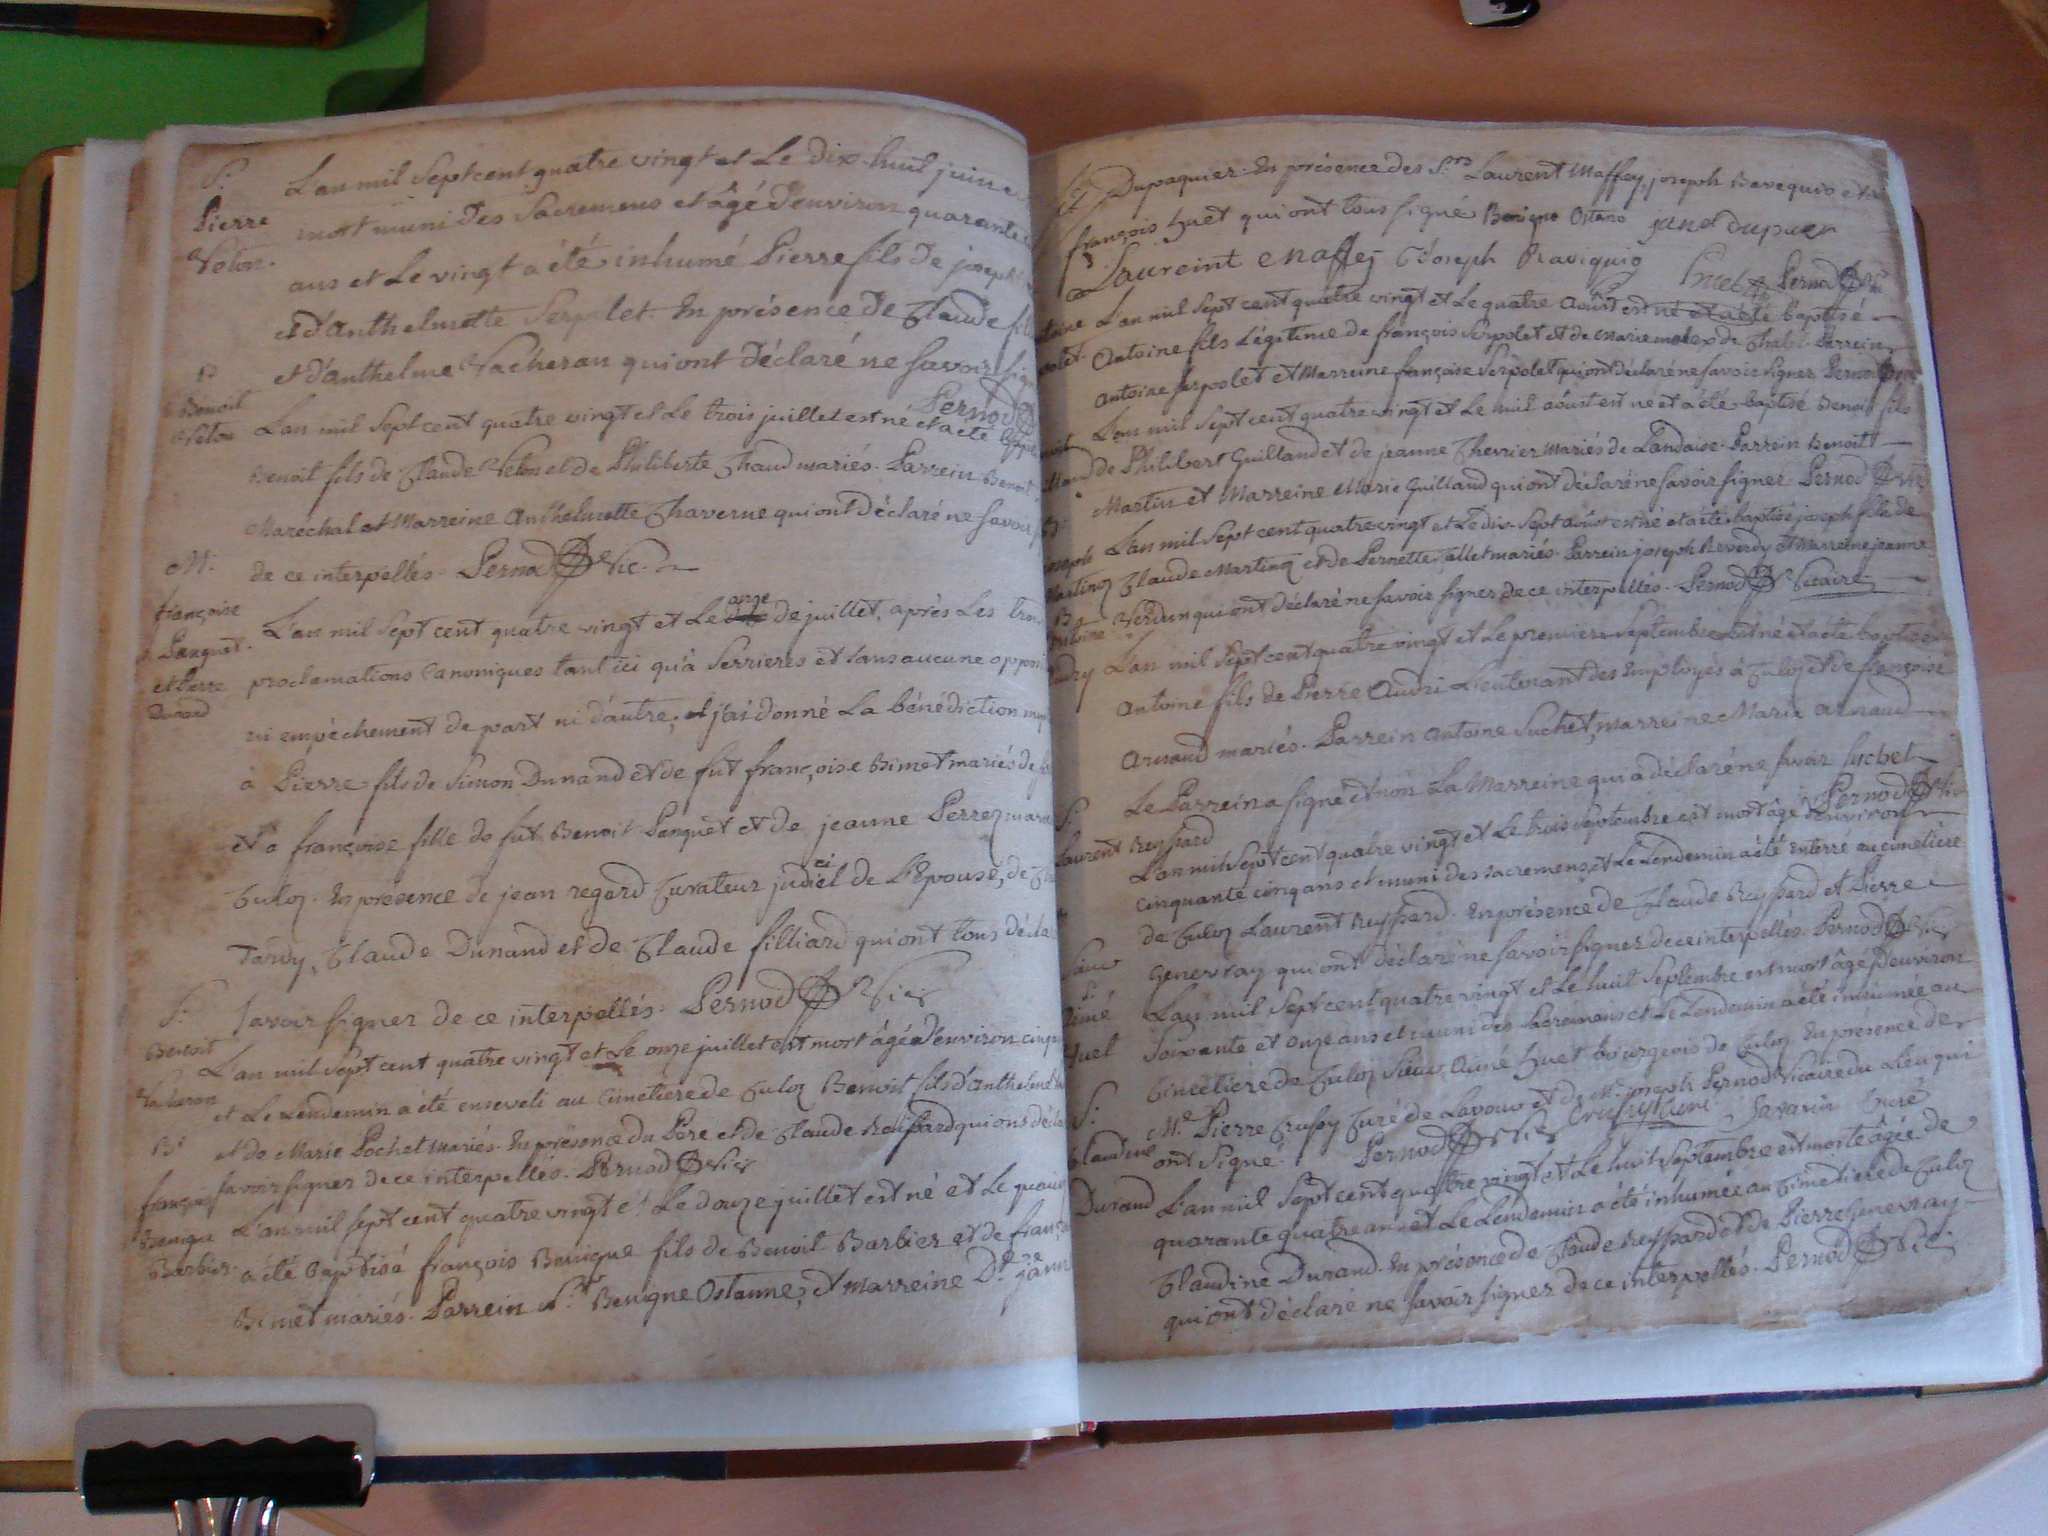 S.
Pierre
Veton.
L'an mil Sept cent quatre vingt et Le dix-huit juin
mort muni des Sacremens et âgé d'environ quarante
ans et Le vingt a été inhumé Pierre fils de joseph
et d'anthelmette Serpolet. En présence de Claude
et d'anthelme Vacheran qui ont déclaré ne savoir
Pernod
B
Benoit
Veton
L'an mil Sept cent quatre vingt et Le trois juillet est né et a été
Benoit fils de Claude Veton et de Philiberte Chaud mariés. Parrein Benoit
Maréchal et Marreine Anthelmette Chaverne qui ont déclaré ne savoir
de ce interpellés. Pernod Vic.
M.
françoise
Panguet.
et Pierre
Dunand
L'an mil Sept cent quatre vingt et Le onze de juillet, après Les trois
proclamations Canoniques tant ici qu'à Serrieres et sans aucune
ni empêchement de part ni d'autre, et j'ai donné La bénédiction
à Pierre fils de Simon Dunand et de fut françoise Bimet mariés de
et à françoise fille de fut Benoit Panguet et de jeanne Perret
Culoz. En présence de jean regard Curateur judiciel de L'Epouse, de
Tardy, Claude Dunand et de Claude filliard qui ont tous
savoir signer de ce interpellés. Pernod Vic
S.
Benoit
Vacheron
L'an mil Sept cent quatre vingt et Le onze juillet est mort âgé d'environ
et Le Lendemain a été enseveli au Cimetiere de Culoz Benoit fils d'anthelme
et de Marie Pochet Mariés. En présence du Pere et de Claude Reissard qui ont
savoir signer de ce interpellés. Pernod Vic
B
françois
Benigne
Barbier
L'an mil sept cent quatre vingt et Le douze juillet est né et Le
a été baptisé françois Benigne fils de Benoit Barbier et de
Bimet mariés. Parrein Sr. Benigne Ostanne, et Marreine
Dupaquier. En présence des Srs. Laurent Maffey, joseph
françois huet qui ont tous signé Benigne Ostano
Laureint Maffey Joseph Raviquio huet Pernod Vic
L'an mil Sept cent quatre vingt et Le quatre Aoust est né et a été baptisé
Antoine fils Légitime de françois Serpolet et de Marie de Chatel. Parrein
antoine serpolet et Marreine françoise Serpolet qui ont déclaré ne savoir signer. Pernod
L'an mil Sept cent quatre vingt et Le huit aoust est né et a été baptisé Benoit fils
de Philibert Guilland et de jeanne Chevrier Mariés de Landaise. Parrein Benoit
Martin et Marreine Marie Guilland qui ont déclaré ne savoir signer. Pernod Vic
B
joseph
Martinoz
L'an mil Sept cent quatre vingt et Le dix-Sept Aoust est né et a été baptisé joseph fils de
Claude Martinoz et de Pernette Tallet mariés. Parrein joseph Reverdy et Marreine jeanne
Verdun qui ont déclaré ne savoir signer de ce interpellés. Pernod Vicaire.
B
Antoine
Audry
L'an mil Sept cent quatre vingt et Le premier Septembre est né et a été baptisé
Antoine fils de Pierre Audri Lieutenant des Employés à Culoz et de françoise
Arnaud mariés. Parrein Antoine Suchet, Marreine Marie Arnaud
Le Parrein a signé et non La Marreine qui a déclaré ne savoir Suchet
Pernod Vic
S.
Laurent Reyssard
L'an mil Sept cent quatre vingt et Le trois Septembre est mort âgé d'environ
cinquante cinq ans et muni des sacremens, et Le Lendemain a été enterré au cimetiere
de Culoz Laurent Reyssard. En présence de Claude Reyssard et Pierre
Genevray qui ont déclaré ne savoir signer de ce interpellés. Pernod Vic
Sieur
S.
Aimé
huet
L'an mil Sept cent quatre vingt et Le huit Septembre est mort âgé d'environ
Soixante et onze ans et muni des Sacremens et Le Lendemain a été inhumé au
Cimetiere de Culoz Sieur Aimé huet bourgeois de Culoz. En présence de
Me. Pierre Crussy Curé de Lavour et de Mr. joseph Pernod Vicaire du Lieu qui
ont signé. Pernod Vic Crussy curé. Savarin Curé
S.
Claudine
Durand
L'an mil Sept cent quatre vingt et Le huit Septembre est morte âgée de
quarante quatre ans et Le Lendemain a été inhumée au Cimetiere de Culoz
Claudine Durand. En présence de Claude Reyssard et de Pierre Genevray
qui ont déclaré ne savoir signer de ce interpellés. Pernod Vic